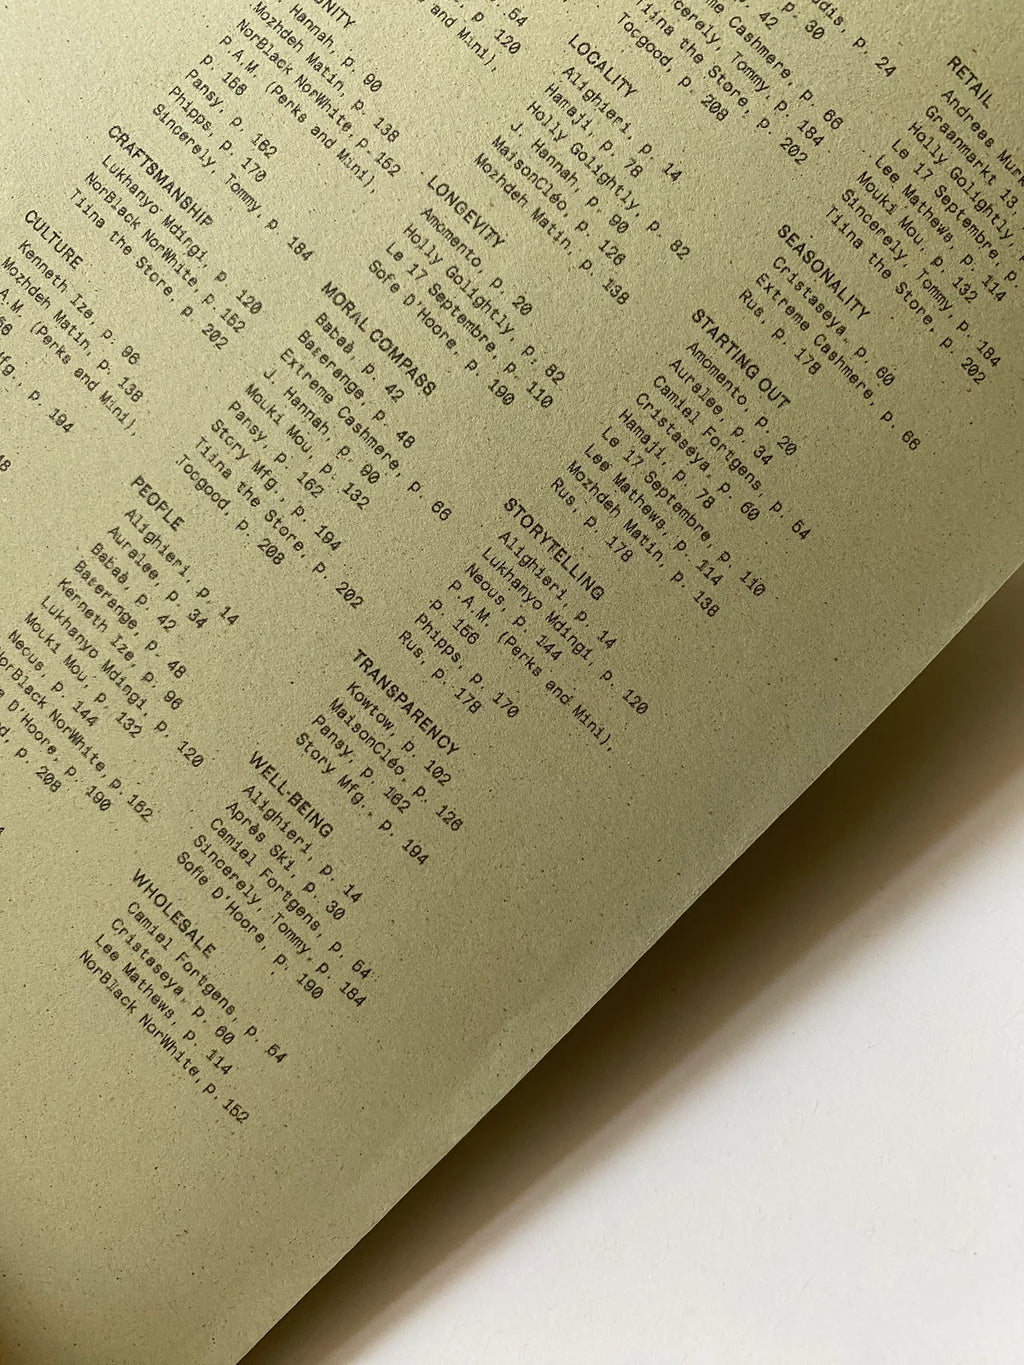 p. 54
p. 120
and Mini),
Hannah, p. 90
Mozhdeh Matin, p. 138
NorBlack NorWhite, p. 152
P.A.M. (Perks and Mini),
p. 156
Pansy, p. 162
Phipps, p. 170
Sincerely, Tommy, p. 184
CRAFTSMANSHIP
Lukhanyo Mdingi, p. 120
NorBlack NorWhite, p. 152
Tiina the Store, p. 202
CULTURE
Kenneth Ize, p. 96
Mozhdeh Matin, p. 138
(Perks and Mini),
p. 194
PEOPLE
Alighieri, p. 14
Auralee, p. 34
Babaà, p. 42
Baserange, p. 48
Kenneth Ize, p. 96
Lukhanyo Mdingi, p. 120
Mouki Mou, p. 132
Neous, p. 144
NorBlack NorWhite, p. 152
D'Hoore, p. 190
p. 208
p. 24
p. 30
p. 42
Cashmere, p. 66
Sincerely, Tommy, p. 184
Tiina the Store, p. 202
Tocgood, p. 208
LOCALITY
Alighieri, p. 14
Hamaji, p. 78
Holly Golightly, p. 82
J. Hannah, p. 90
MaisonCléo, p. 126
Mozhdeh Matin, p. 138
LONGEVITY
Amomento, p. 20
Holly Golightly, p. 82
Le 17 Septembre, p. 110
Sofie D'Hoore, p. 190
MORAL COMPASS
Babaà, p. 42
Baserange, p. 48
Extreme Cashmere, p. 66
J. Hannah, p. 90
Mouki Mou, p. 132
Pansy, p. 162
Story Mfg., p. 194
Tiina the Store, p. 202
Tocgood, p. 208
RETAIL
Andreas
Graanmarkt 13,
Holly Golightly,
Le 17 Septembre, p.
Lee Mathews, p. 114
Mouki Mou, p. 132
Sincerely, Tommy, p. 184
Tiina the Store, p. 202
SEASONALITY
Cristaseya, p. 60
Extreme Cashmere, p. 66
Rus, p. 178
STARTING OUT
Amomento, p. 20
Auralee, p. 34
Camiel Fortgens, p. 54
Cristaseya, p. 60
Hamaji, p. 78
Le 17 Septembre, p. 110
Lee Mathews, p. 114
Mozhdeh Matin, p. 138
Rus, p. 178
STORYTELLING
Alighieri, p. 14
Lukhanyo Mdingi, p. 120
Neous, p. 144
P.A.M. (Perks and Mini),
p. 156
Phipps, p. 170
Rus, p. 178
TRANSPARENCY
Kowtow, p. 102
MaisonCléo, p. 126
Pansy, p. 162
Story Mfg., p. 194
WELL-BEING
Alighieri, p. 14
Après Ski, p. 30
Camiel Fortgens, p. 54
Sincerely, Tommy, p. 184
Sofie D'Hoore, p. 190
WHOLESALE
Camiel Fortgens, p. 54
Cristaseya, p. 60
Lee Mathews, p. 114
NorBlack NorWhite, p. 152